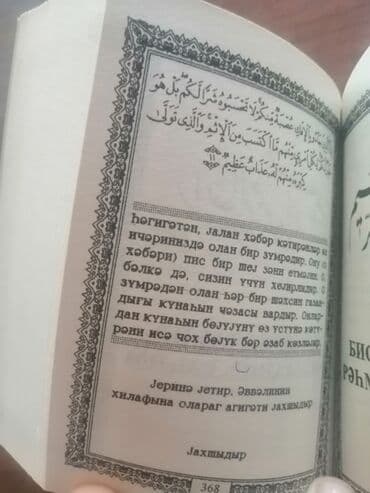 عُصْبَةٌ مِنْكُمْ لَا تَحْسَبُوهُ شَرًّا لَكُمْ بَلْ هُوَ
مِنْهُمْ مَا اكْتَسَبَ مِنَ الْإِثْمِ وَالَّذِي تَوَلَّى
مِنْهُمْ لَهُ عَذَابٌ عَظِيمٌ ۝١١
Һәгигәтән, јалан хәбәр кәтирәнләр
ичәриниздә олан бир зүмрәдир. Ону (о
хәбәри) пис бир шеј зәнн етмәјин. О,
бәлкә дә, сизин үчүн хејирлидир.
зүмрәдән олан һәр бир шәхсин газан-
дығы күнаһын ҹәзасы вардыр. Онлар-
дан күнаһын бөјүјүнү өз үстүнә көтү-
рәни исә чох бөјүк бәр әзаб көзләјир.
Јеринә јетир. Әввәлинин
хилафына олараг агигәти јахшыдыр
Јахшыдыр
368
БИС
РӘҺМ